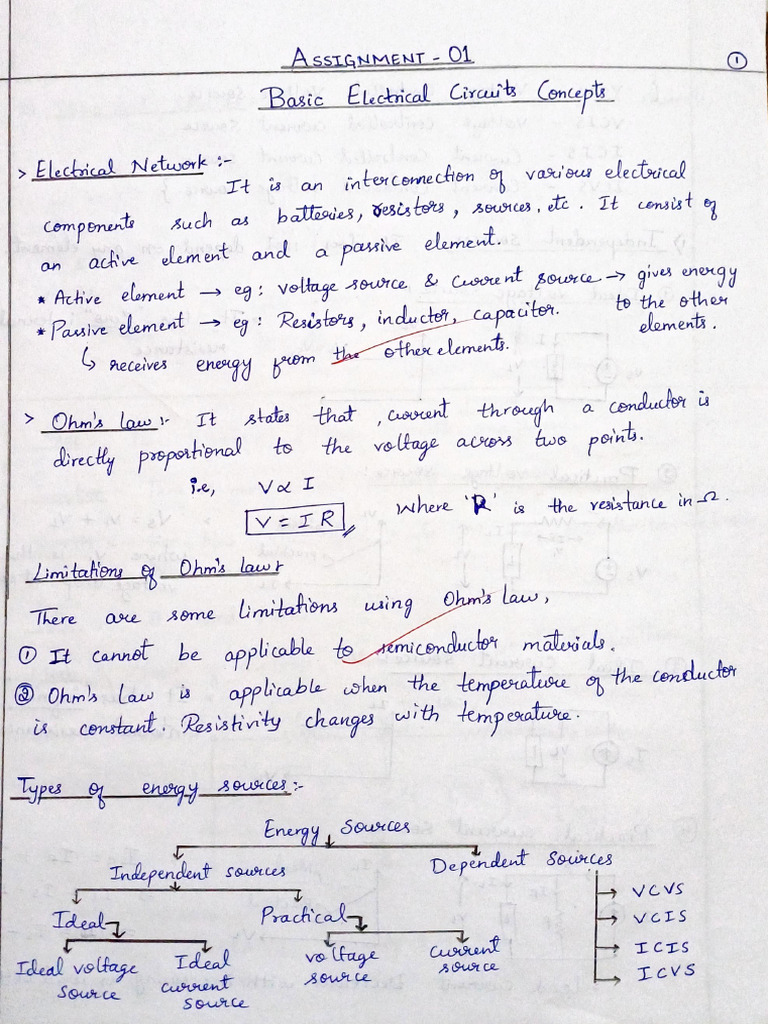 ASSIGNMENT - 01
1
Basic Electrical Circuits Concepts
> Electrical Network :-
It is an interconnection of various electrical
components such as batteries, resistors, sources, etc. It consist of
an active element and a passive element.
* Active element → eg: voltage source & current source → gives energy
to the other
elements.
* Passive element → eg: Resistors, inductor, capacitor.
↳ receives energy from the other elements.
> Ohm's law :- It states that, current through a conductor is
directly proportional to the voltage across two points.
i.e, V ∝ I
V = I R Where 'R' is the resistance in Ω.
Limitations of Ohm's law :-
There are some limitations using Ohm's law,
① It cannot be applicable to semiconductor materials.
② Ohm's Law is applicable when the temperature of the conductor
is constant. Resistivity changes with temperature.
Types of energy sources :-
Energy Sources
Independent sources Dependent Sources
Ideal Practical
Ideal voltage source
Ideal current source
voltage source
current source
→ VCVS
→ VCIS
→ ICIS
→ ICVS